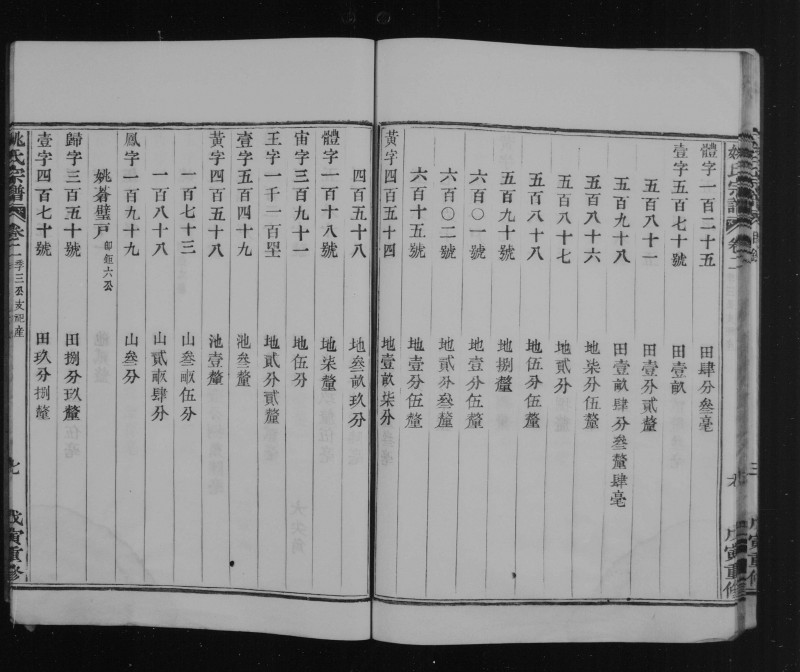 體字一百二十五 田肆分叄毫
壹字五百七十號 田壹畝
五百八十一 田壹分貳釐
五百九十八 田壹畝肆分叄釐肆毫
五百八十六 地柒分伍釐
五百八十七 地貳分
五百八十八 地伍分伍釐
五百九十號 地捌釐
六百〇一號 地壹分伍釐
六百〇二號 地貳分叄釐
六百十五號 地壹分伍釐
黃字四百五十四 地壹畝柒分
四百五十八 地叄畝玖分
體字一百十八號 地柒釐
宙字三百九十一 地伍分
王字一千一百 地貳分貳釐
壹字五百四十九 池叄釐
黃字四百五十八 池壹釐
一百七十三 山叄畝伍分
一百八十八 山貳畝肆分
鳳字一百九十九 山叄分
姚碁璧戸 卽鉅六公
歸字三百五十號 田捌分玖釐
壹字四百七十號 田玖分捌釐
姚氏宗譜 卷二 季三公支祀産 七 戊寅重修